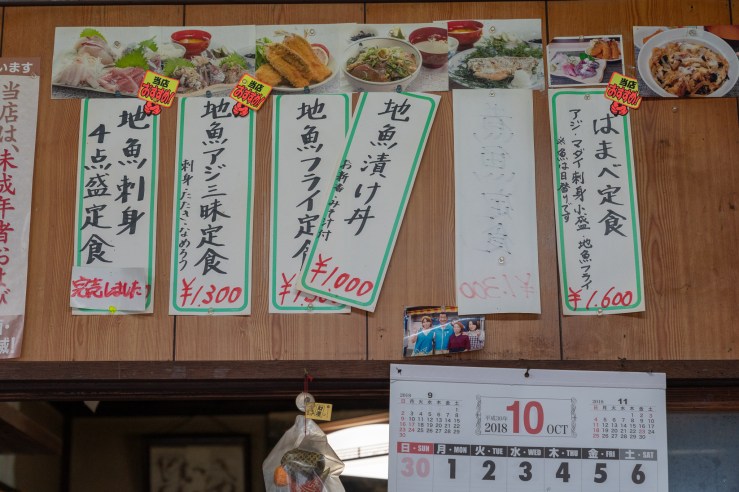 います
当店は、未成年者および
地魚刺身
4点盛定食
完売しました
当店
おすすめ!
地魚アジ三昧定食
刺身・たたき・なめろう
¥1,300
当店
おすすめ!
地魚フライ定食
地魚漬け丼
お新香・みそ汁付
¥1,000
はまべ定食
アジ・マダイ刺身小盛・地魚フライ
※魚は日替りです
¥1,600
当店
おすすめ!
2018 9
平成30年
2018 10 OCT
2018 11
日・SUN 月・MON 火・TUE 水・WED 木・THU 金・FRI 土・SAT
30 1 2 3 4 5 6